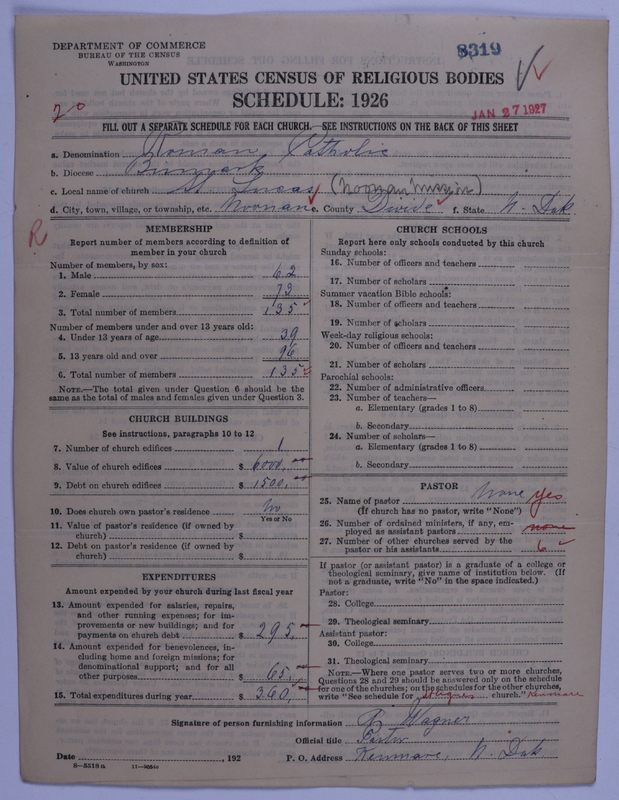 DEPARTMENT OF COMMERCE
BUREAU OF THE CENSUS
WASHINGTON
8319
UNITED STATES CENSUS OF RELIGIOUS BODIES
SCHEDULE: 1926
20
JAN 27 1927
FILL OUT A SEPARATE SCHEDULE FOR EACH CHURCH. SEE INSTRUCTIONS ON THE BACK OF THIS SHEET
a. Denomination Roman Catholic
b. Diocese Bismarck
c. Local name of church St Lucas (Noonan Mission)
d. City, town, village, or township, etc. Noonan e. County Divide f. State N. Dak.
R
MEMBERSHIP
Report number of members according to definition of member in your church
Number of members, by sex:
1. Male 62
2. Female 72
3. Total number of members 135
Number of members under and over 13 years old:
4. Under 13 years of age 39
5. 13 years old and over 96
6. Total number of members 135
NOTE.—The total given under Question 6 should be the same as the total of males and females given under Question 3.
CHURCH BUILDINGS
See instructions, paragraphs 10 to 12
7. Number of church edifices 1
8. Value of church edifices $ 6000.00
9. Debt on church edifices $ 1500.
10. Does church own pastor's residence No
Yes or No
11. Value of pastor's residence (if owned by church) $
12. Debt on pastor's residence (if owned by church) $
EXPENDITURES
Amount expended by your church during last fiscal year
13. Amount expended for salaries, repairs, and other running expenses; for improvements or new buildings; and for payments on church debt $ 295.
14. Amount expended for benevolences, including home and foreign missions; for denominational support; and for all other purposes $ 65.
15. Total expenditures during year $ 360.
CHURCH SCHOOLS
Report here only schools conducted by this church
Sunday schools:
16. Number of officers and teachers
17. Number of scholars
Summer vacation Bible schools:
18. Number of officers and teachers
19. Number of scholars
Week-day religious schools:
20. Number of officers and teachers
21. Number of scholars
Parochial schools:
22. Number of administrative officers
23. Number of teachers—
a. Elementary (grades 1 to 8)
b. Secondary
24. Number of scholars—
a. Elementary (grades 1 to 8)
b. Secondary
PASTOR
25. Name of pastor None yes
(If church has no pastor, write "None")
26. Number of ordained ministers, if any, employed as assistant pastors none
27. Number of other churches served by the pastor or his assistants 6
If pastor (or assistant pastor) is a graduate of a college or theological seminary, give name of institution below. (If not a graduate, write "No" in the space indicated.)
Pastor:
28. College
29. Theological seminary
Assistant pastor:
30. College
31. Theological seminary
NOTE.—Where one pastor serves two or more churches, Questions 28 and 29 should be answered only on the schedule for one of the churches; on the schedules for the other churches, write "See schedule for church." Kenmare
Signature of person furnishing information R Wagner
Official title Pastor
Date , 192 P. O. Address Kenmare, N. Dak
8—5518a 11—9054a